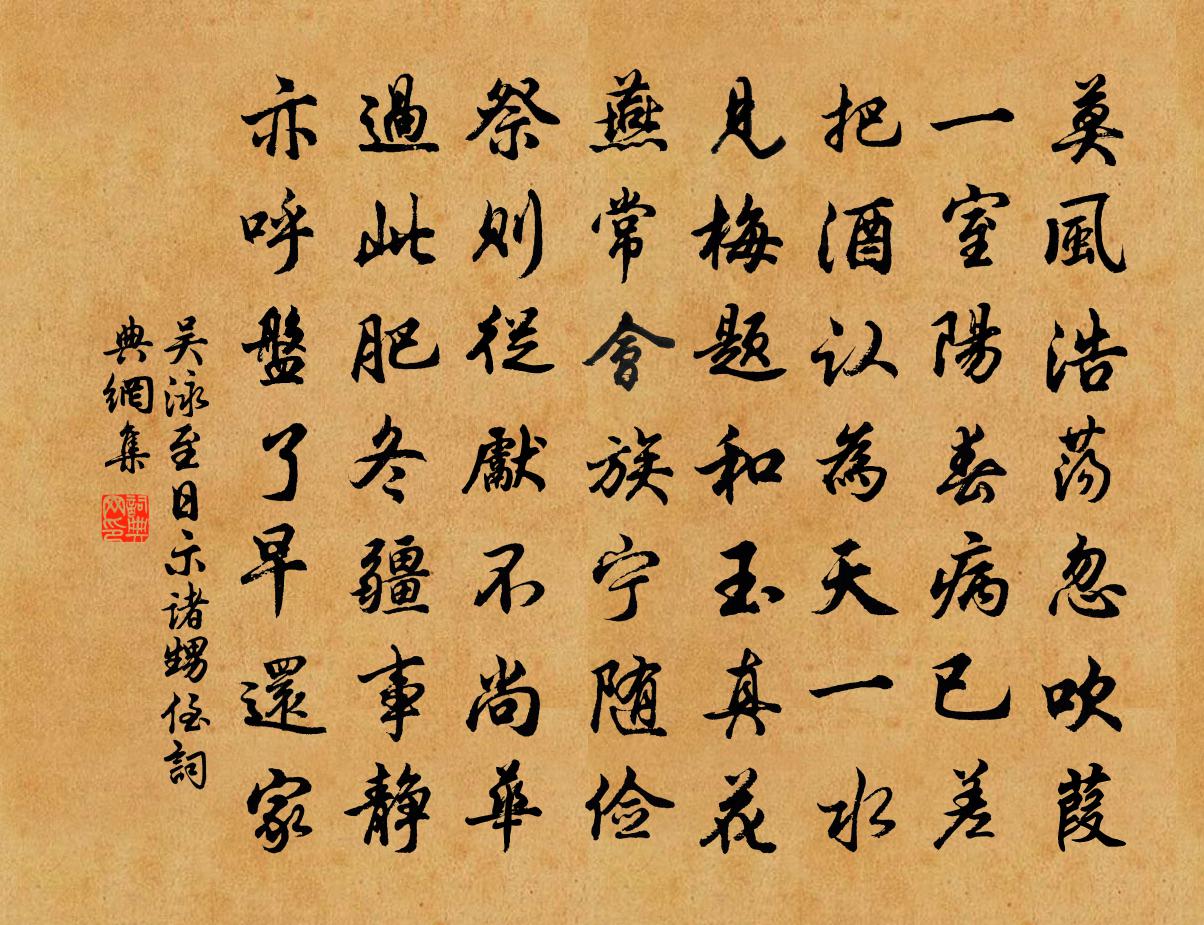 莫風浩荡忽吹葭
一室陽春病已差
把酒认為天一水
見梅题和玉真花
燕常會族宁随俭
祭则從獻不尚華
過此肥冬疆事静
亦呼盤了早還家
吴泳至日示诸甥侄詞
典網集
詞典网印